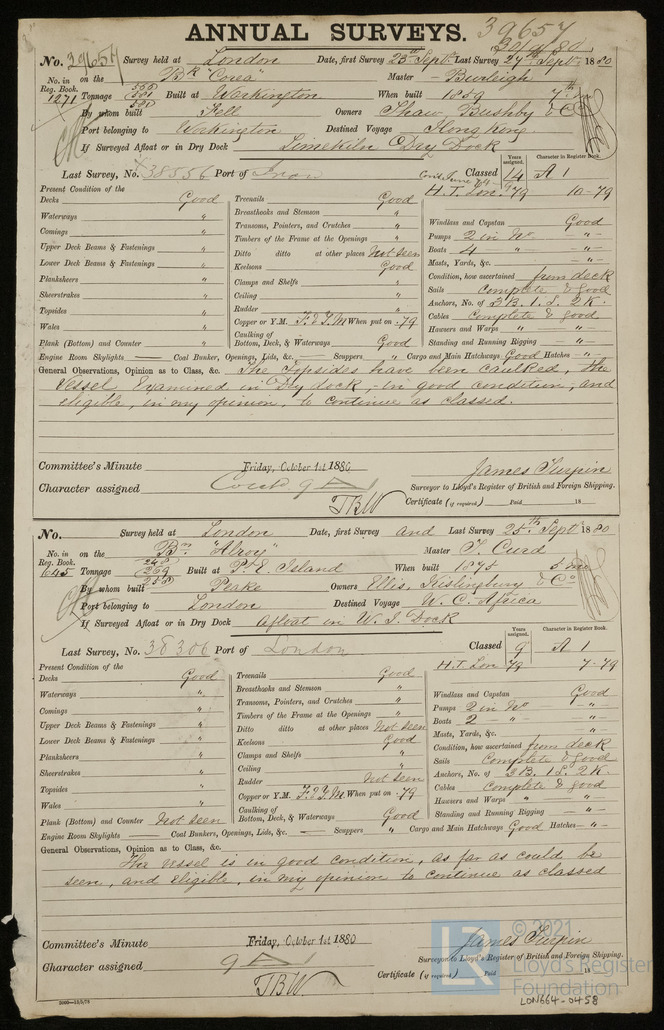 ANNUAL SURVEYS.
39657
30/9/80
No. 39657 Survey held at London Date, first Survey 25th Septr Last Survey 27th Septr 1880
No. in Reg. Book. 1271 on the Bk "Corea" Master Burleigh
Tonnage 556 581 580 Built at Workington When built 1859 7th mo
By whom built Fell Owners Shaw Bushby & Co
Port belonging to Workington Destined Voyage Hong Kong
If Surveyed Afloat or in Dry Dock Limekiln Dry Dock
Last Survey, No. 38556 Port of Classed Years assigned. 14 Character in Register Book. A 1
H.T. Lon. 79 10-79
Present Condition of the
Decks Good
Waterways "
Comings "
Upper Deck Beams & Fastenings "
Lower Deck Beams & Fastenings "
Planksheers "
Sheerstrakes "
Topsides "
Wales "
Plank (Bottom) and Counter "
Treenails Good
Breasthooks and Stemson "
Transoms, Pointers, and Crutches "
Timbers of the Frame at the Openings "
Ditto ditto at other places Not seen
Keelsons Good
Clamps and Shelfs "
Ceiling "
Rudder "
Copper or Y.M. F. & Y.M When put on .79
Caulking of Bottom, Deck, & Waterways Good
Windlass and Capstan Good
Pumps 2 in No. "
Boats 4 " "
Masts, Yards, &c. "
Condition, how ascertained from deck
Sails Complete & good
Anchors, No. of 3B. 1.S. 2K.
Cables Complete & good
Hawsers and Warps " "
Standing and Running Rigging "
Engine Room Skylights — Coal Bunker, Openings, Lids, &c. — Scuppers " Cargo and Main Hatchways Good Hatches "
General Observations, Opinion as to Class, &c. The Topsides have been caulked, the
Vessel examined in Dry dock, in good condition, and
eligible, in my opinion, to continue as classed.
Committee's Minute Friday, October 1st 1880
James Turpin
Surveyor to Lloyd's Register of British and Foreign Shipping.
Character assigned Contd 9 A 1
TBW
Certificate (if required) Paid 18
No. Survey held at London Date, first Survey and Last Survey 25th Septr 1880
No. in Reg. Book. 645 on the Bn "Alroy" Master T. Curd
Tonnage 248 259 258 Built at P. E. Island When built 1875 5 mo
By whom built Peake Owners Ellis, Kislingbury & Co
Port belonging to London Destined Voyage W. C. Africa
If Surveyed Afloat or in Dry Dock Afloat in W. I. Dock
Last Survey, No. 38306 Port of London Classed Years assigned. 9 Character in Register Book. A 1
H.T. Lon 79 7-79
Present Condition of the
Decks Good
Waterways "
Comings "
Upper Deck Beams & Fastenings "
Lower Deck Beams & Fastenings "
Planksheers "
Sheerstrakes "
Topsides "
Wales "
Plank (Bottom) and Counter Not seen
Treenails Good
Breasthooks and Stemson "
Transoms, Pointers, and Crutches "
Timbers of the Frame at the Openings "
Ditto ditto at other places Not seen
Keelsons Good
Clamps and Shelfs "
Ceiling "
Rudder Not seen
Copper or Y.M. F. & Y.M When put on .79
Caulking of Bottom, Deck, & Waterways Good
Windlass and Capstan Good
Pumps 2 in No "
Boats 2 " "
Masts, Yards, &c. "
Condition, how ascertained from deck
Sails Complete & good
Anchors, No. of 3B. 1S. 2K.
Cables Complete & good
Hawsers and Warps " "
Standing and Running Rigging "
Engine Room Skylights — Coal Bunkers, Openings, Lids, &c. — Scuppers " Cargo and Main Hatchways Good Hatches "
General Observations, Opinion as to Class, &c.
The vessel is in good condition, as far as could be
seen, and eligible, in my opinion to continue as classed
Committee's Minute Friday, October 1st 1880
James Turpin
Surveyor to Lloyd's Register of British and Foreign Shipping.
Character assigned 9 A 1
TBW
Certificate (if required) Paid 18
© 2021
LR
Lloyd's Register
Foundation
LON664-0458